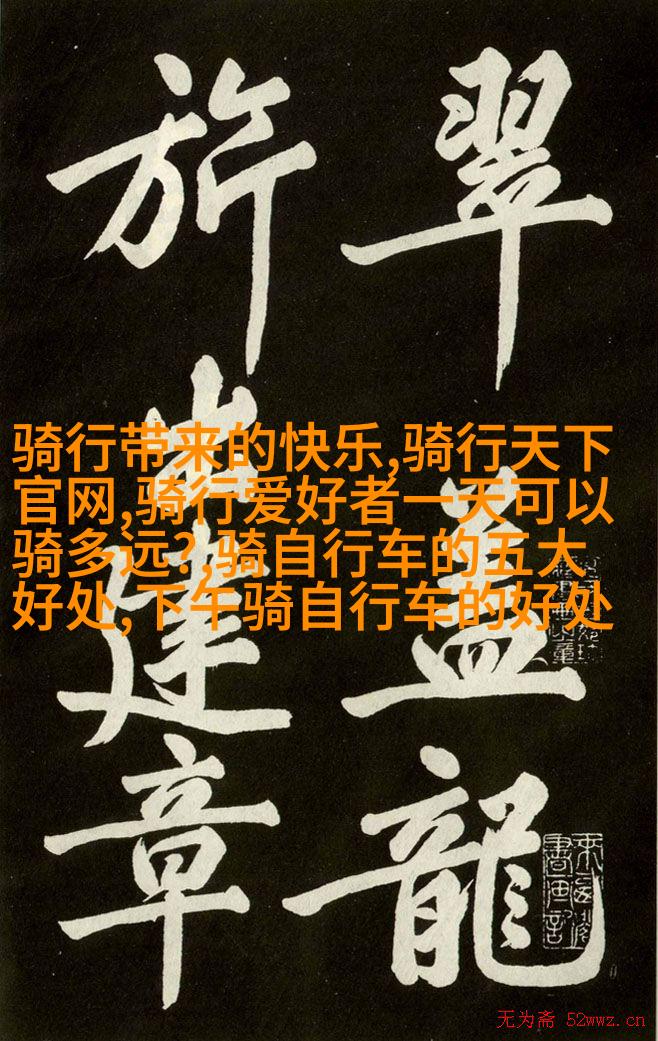 翠盖龍
旂出建章
骑行带来的快乐,骑行天下
官网,骑行爱好者一天可以
骑多远?,骑自行车的五大
好处,下午骑自行车的好处
无为斋 52wwz.cn